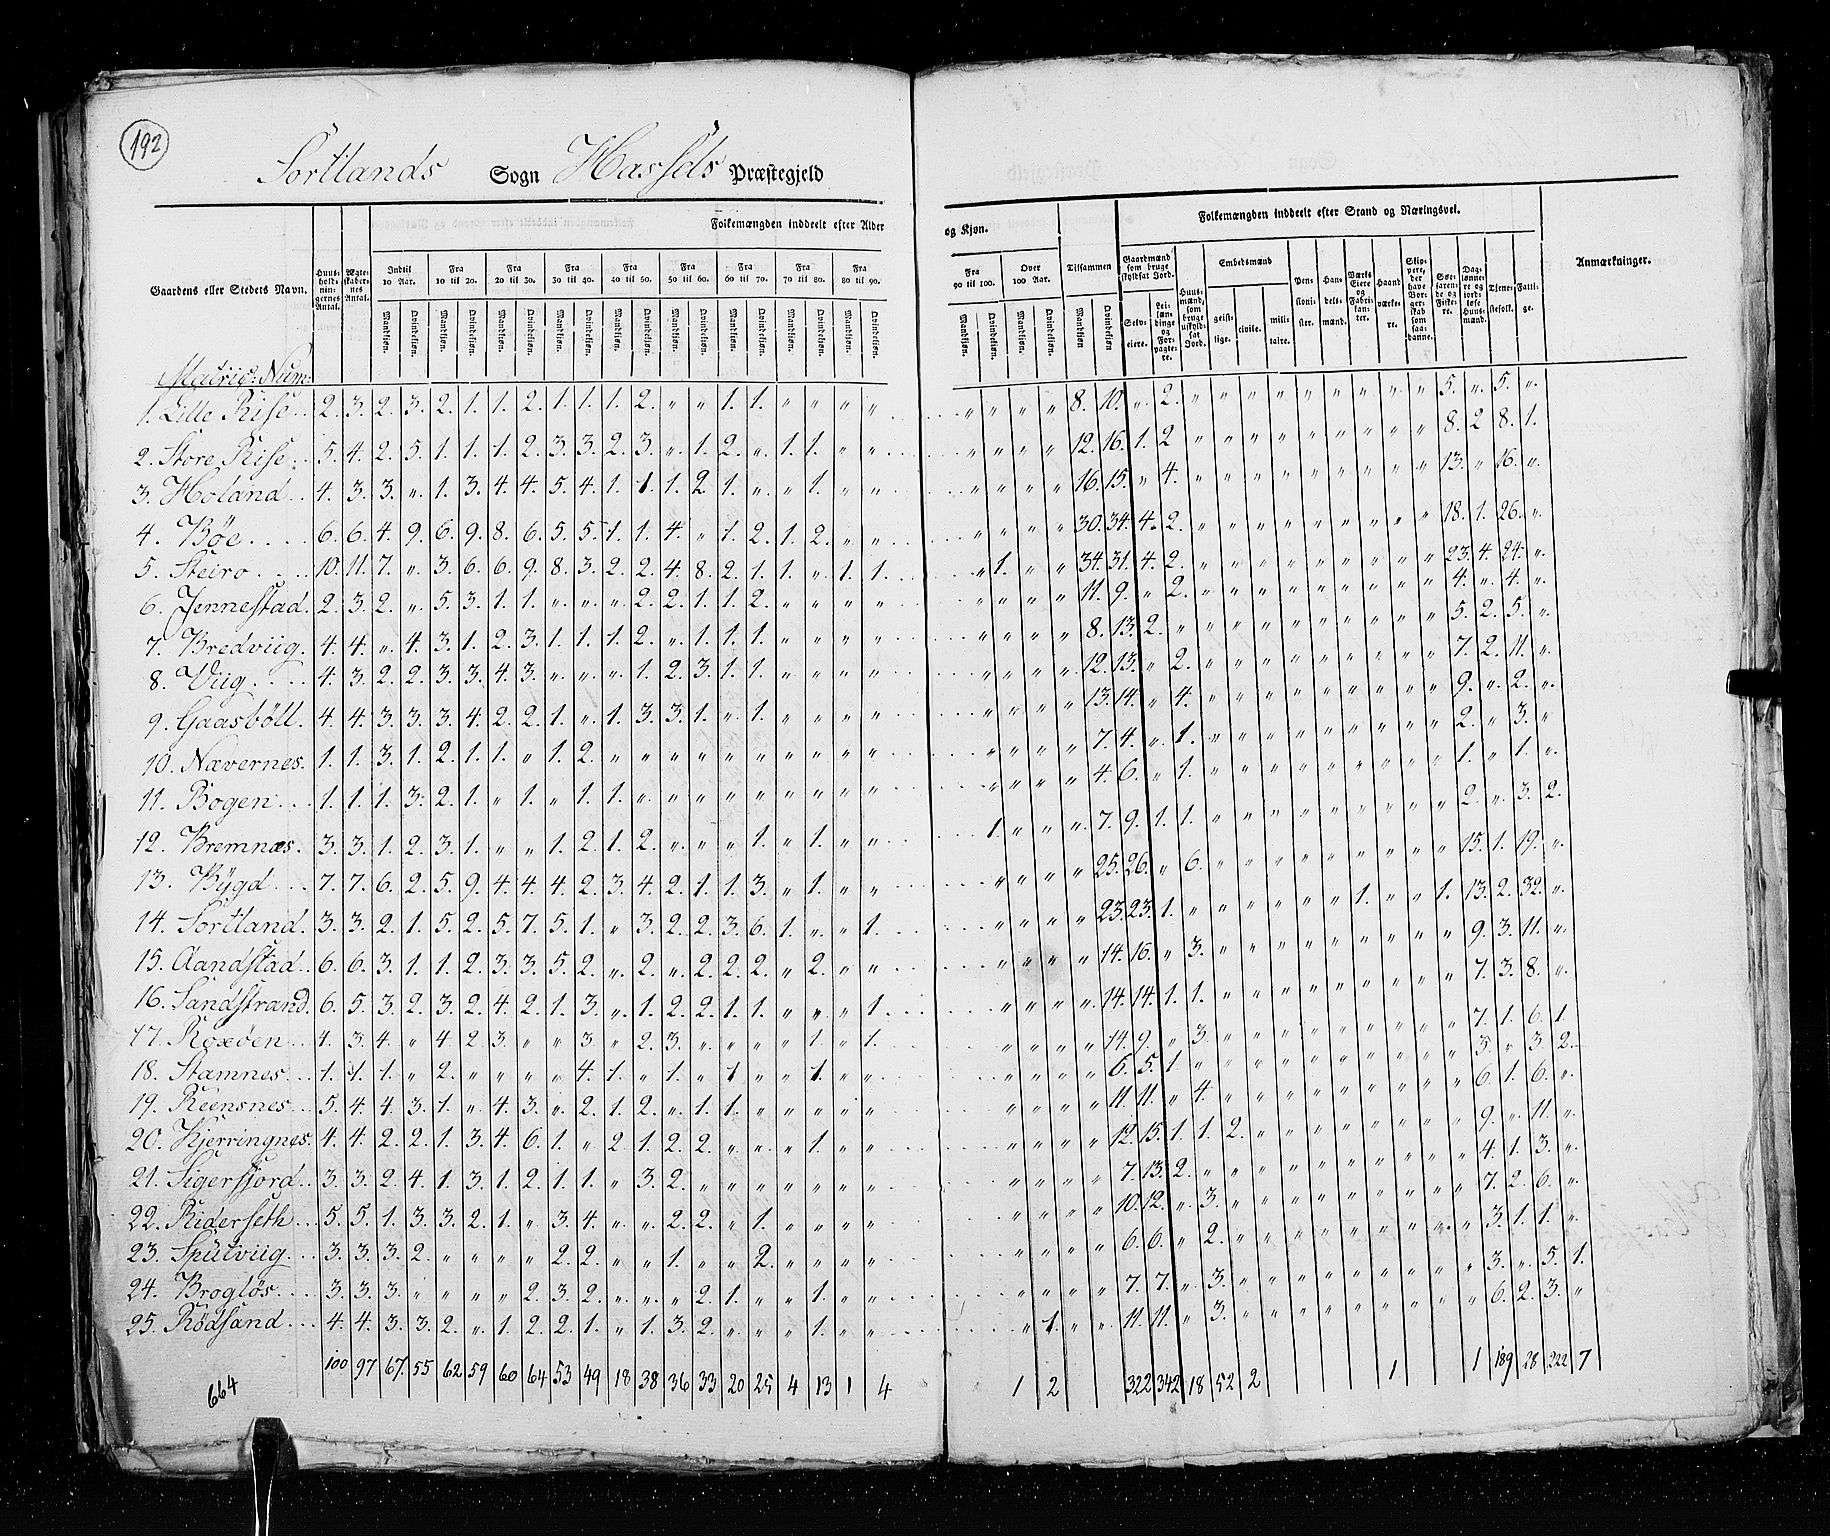 192
Sortlands Sogn Hassels Præstegjeld
Folkemængden inddeelt efter Alder og Kjøn. Folkemængden inddeelt efter Stand og Næringsvei.
Gaardens eller Stedets Navn. Huusholdningernes Antal. Ægteskabernes Antal. Indtil 10 Aar. Fra 10 til 20. Fra 20 til 30. Fra 30 til 40. Fra 40 til 50. Fra 50 til 60. Fra 60 til 70. Fra 70 til 80. Fra 80 til 90. Fra 90 til 100. Over 100 Aar. Tilsammen Anmærkninger.
Gaardmænd som bruge skyldsat Jord. Huusmænd, som bruge uskyldsat Jord. Embedsmænd Pensionister. Handelsmænd. Værks Eiere og Fabrikanter. Haandværkere. Slippere, der have Borgerskab som saadanne. Søefarende og Fiskere. Daglønnere og jordløse Huusmænd. Tjenestefolk. Fattige.
Mandkjøn. Qvindekjøn. Selveiere. Leilændinge og Forpagtere. geistlige. civile. militaire.
Matric: Num:
1. Lille Rise 2. 3. 2. 3. 2. 1. 1. 2. 1. 1. 1. 2. " " 1. 1. " " " " " " " " 8. 10. " 2. " " " " " " " " " 5. " 5. "
2. Store Rise 5. 4. 2. 5. 1. 1. 1. 2. 3. 3. 2. 3. " 1. 2. " 1. 1. " " " " " " 12. 16. 1. 2 " " " " " " " " " 8. 2 8. 1.
3. Holand 4. 3. 3. " 1. 3. 4. 4. 5. 4. 1. 1. 1. 2 1. " " 1. " " " " " " 16. 15. " 4. " " " " " " " " " 13. " 16. "
4. Bøe 6. 6. 4. 9. 6. 9. 8. 6. 5. 5. 1. 1. 4. " 1. 2. 1. 2. " " " " " " 30. 34. 4. 2. " " " " " " " " " 18. 1. 26. "
5. Steiro 10. 11. 7. " 3. 6. 6. 9. 8. 3. 2. 2. 4. 8. 2. 1. 1. " 1. 1. " 1. " " 34. 31. 4. 2. " " " " " " " " " 23. 4. 24. "
6. Jennestad 2. 3. 2. " 5. 3. 1. 1. " " " 2. 2. 1. 1. 2. " " " " " " " " 11. 9. " 2. " " " " " " " " " 4. " 4. "
7. Bredviig 4. 4. " 4. 3. 1. 2. 3. 1. 1. 1. 2. " 1. 1. 1. " " " " " " " " 8. 13. 2. " " " " " " " " " " 5. 2. 5. "
8. Viig 4. 3. 2. 2. 3. 3. 4. 3. " " " 1. 2. 3. 1. 1. " " " " " " " " 12. 13. " 2. " " " " " " " " " 7. 2. 11. "
9. Gaasböll 4. 4. 3. 3. 3. 4. 2. 2. 1. " 1. 3. 3. 1. " 1. " " " " " " " " 13. 14. " 4. " " " " " " " " " 9. " 2. "
10. Nævernes 1. 1. 3. 1. 2. 1. 1. " 1. 2. " " " " " " " " " " " " " " 7. 4. " 1. " " " " " " " " " 2. " 3. "
11. Bogen 1. 1. 1. 3. 2. 1. " 1. " 1. 1. " " " " " " " " " " " " " 4. 6. " 1. " " " " " " " " " 1. " 1. "
12. Bremnæs 3. 3. 1. 2. 3. 1. " " 1. 2. 1. 2. " " " 1. " 1. " " 1. " " " 7. 9. 1. 1. " " " " " " " " " 2. " 3. 2.
13. Bÿgd 7. 7. 6. 2. 5. 9. 4. 4. 4. 2. 3. 4. 2. 1. 1. 3. " 1. " " " " " " 25. 26. " 6. " " " " " " " " " 15. 1. 19. "
14. Sortland 3. 3. 2. 1. 5. 2. 5. 7. 5. 1. " 3. 2. 2. 3. 6. 1. " " 1. " " " " 23. 23. 1. " " " " " " " 1. " 1. 13. 2. 32. "
15. Aandstad 6. 6. 3. 1. 1. 2. 3. 3. 5. 2. " 2. " 2. 2. 2. " 2. " " " " " " 14. 16. " 3. " " " " " " " " " 9. 3. 11. "
16. Sandstrand 6. 5. 3. 2. 3. 2. 4. 2. 1. 3. " 1. 2. 2. 1. 1. " " " 1. " " " " 14. 14. 1. 1. " " " " " " " " " 7. 3. 8. "
17. Roxöen 4. 3. 4. " 4. 2. 3. " " 3. " 2. 3. " " " " 1. " 1. " " " " 14. 9. " 3. " " " " " " " " " 7. 1. 6. 1.
18. Stamnes 1. 1. 1. " 2. " " " " 4. 1. " 1. " 1. " " 1. " " " " " " 6. 5. 1 " " " " " " " " " " 3. " 3. 2.
19. Reensnes 5. 4. 4. 3. 1. " 4. 3. " 2. 1. 2. " 1. 1. " " " " " " " " " 11. 11. " 4. " " " " " " " " " 6. 1. 6. "
20. Kjerringnes 4. 4. 2. 2. 1. 3. 4. 6. 1. " 2. 1. 2. 2. " " " 1. " " " " " " 12. 15. 1. 1. 2. " " " " " " " " 9. " 11. "
21. Sigerfjord 3. 3. 2. 4. 1. 3. 1. 2. 1. 1. " 3. 2. " " " " " " " " " " " 7. 13. 2. " " " " " " " " " " 4. 1. 3. "
22. Riderseth 5. 5. 1. 3. 3. 2. 1. " 3. 4. " " 2. 2. " 1. " " " " " " " " 10. 12. " 3. " " " " " " " " " 7. 2. 6. "
23. Spulviig 3. 3. 3. 2. " " " " 2. 2. " " 1. " " 2. " " " " " " " " 6. 6. " 2. " " " " " " " " " 3. 1. 1. "
24. Broglös 3. 3. 3. " " " " 2. 3. 2. " " " 2. 1. " " 1. " " " " " " 7. 7. " 3. " " " " " " " " " 3. " 5. 1.
25. Rödsand 4. 4. 3. 3. 2. " 1. 2. 2. 1. " 1. 3. 2. " " " 1. " " " 1. " " 11. 11. " 3. " " " " " " " " " 6. 2. 3. "
664 100 97 67. 55 62 59 60 64 53 49 18 38 36 33 20 25 4 13 1 4 1 2 322 342 18 52 2 1 1 189 28 222 7